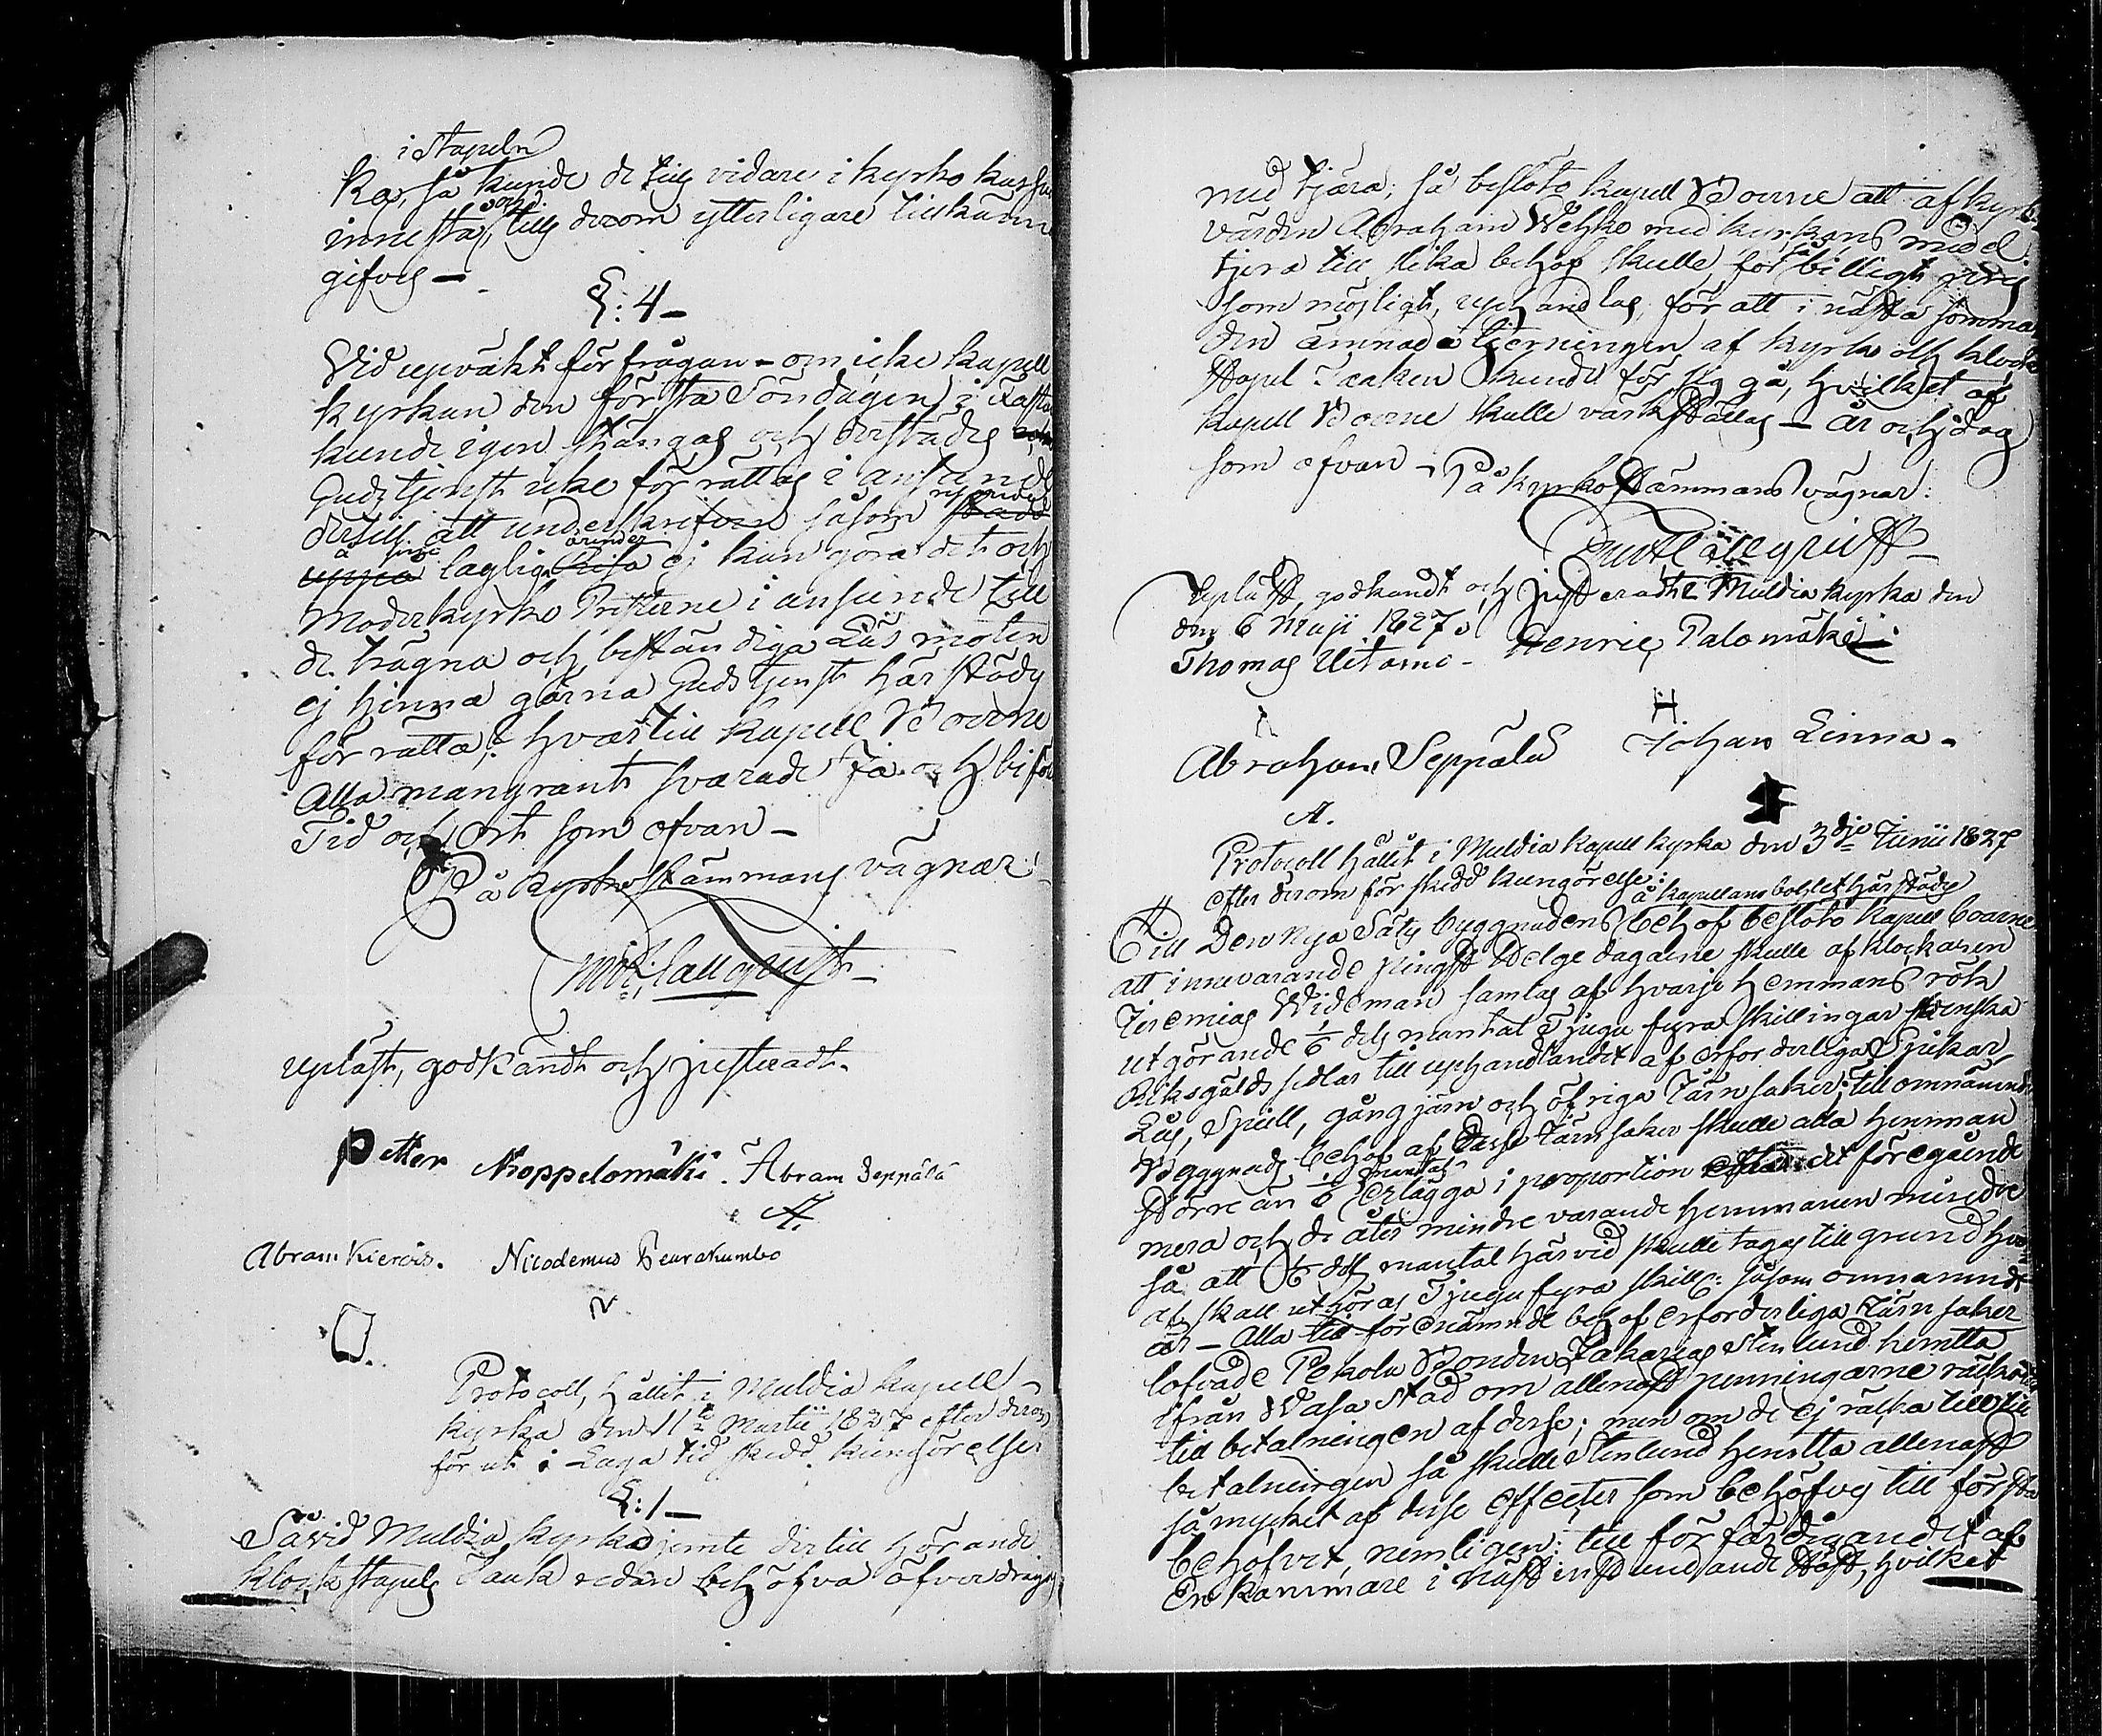 i Stapeln
kas, så kunde de tills vidare i kyrko kassan
innestå, tills derom ytterligare tillkänna
gifves —
§: 4 —
Vid upväkt för frågan - om icke kapell
kyrkan den första Söndagen i Fasta
kunde igen stängas och derstädes
Gudstjenst icke för rättas i anseende
dertill att underskrifven såsom
laglig ej kan göra det och
Moderkyrko Presterne i anseende till
de trägna och beständiga Läs möten
ej hinna gärna Gudstjenst här städes
för rätta; hvartill kapell Boerne
Alla mangrant svarade Ja och biföll
Tid och Ort som ofvan —
På kyrkostämmans vägnar:
Upläst, godkändt och justeradt.
Petter Noppelomäki. Abram Seppälä
A.
Abram Kierois. Nicodemus Peurakumbo
N
Protocoll, hållit i Muldia kapell
kyrka den 11te Martii 1827 efter derom
för ut i Laga tid skedd kungörelse
§: 1 —
Så vid Muldia kyrka jemte dertill hörande
klockstapels Taak redan behöfva öfverdragas
med tjära; så beslöto kapell Boerne att af kyrko
värden Abraham Wehko med kyrkans medel
tjera till slika behof skulle för så billigt pris
som möjligt, uphandlas, för att i nästa sommar
den ämnade tjerningen af kyrko och klock
stapel Taaken kunde för sig gå, hvilket af
kapell Boerne skulle värkställas — År och dag
som ofvan — På kyrkostämmans vägnar:
Upläst, godkändt och justeradt i Muldia kyrka den
den 6 Maji 1827.
Thomas Uitamo - Henric Palomäki
H
Abraham Seppälä Johan Linna.
A.
Protocoll hållit i Muldia kapell kyrka den 3dje Junii 1827
efter derom för skedd kungörelse:
å kapellans bolet härstädes
Till Den nya Sätes byggnadens behof beslöto kapell boarne
att innevarande pingst Helgedagarne skulle af klockaren
Jeremias Wideman samlas af hvarje hemmans rök
utgörande 1/6 dels mantal Tjugu fyra skillingar svenska
Riksgälds sedlar till uphandlandet af erforderliga Spikar
Lås, Spiell, gångjärn och öfriga Järn saker; till omnämnde
Byggnads behof af dessa Järn saker skulle alla hemman
större än 1/6 mantal erlägga i proportion det föregående
mera och de åter mindre varande hemmanen mindre
så att 1/6 dels mantal härvid skulle tagas till grund hvar
af skall utgöras Tjugu fyra skill: såsom omnämndt
är — Alla till förenämnde behof erforderliga Järn saker
lofvade Pekola Bonden Zakarias Stenlund hemtta
ifrån Wasa Stad om allenast penningarne räcka
till betalningen af desse; men om de ej räcka till till
betalningen så skulle Stenlund hemtta allenast
så mycket af desse effecter som behöfves till första
behofvet, nemligen: till för färdigandet af
En kammare i näst instundande Höst, hvilket